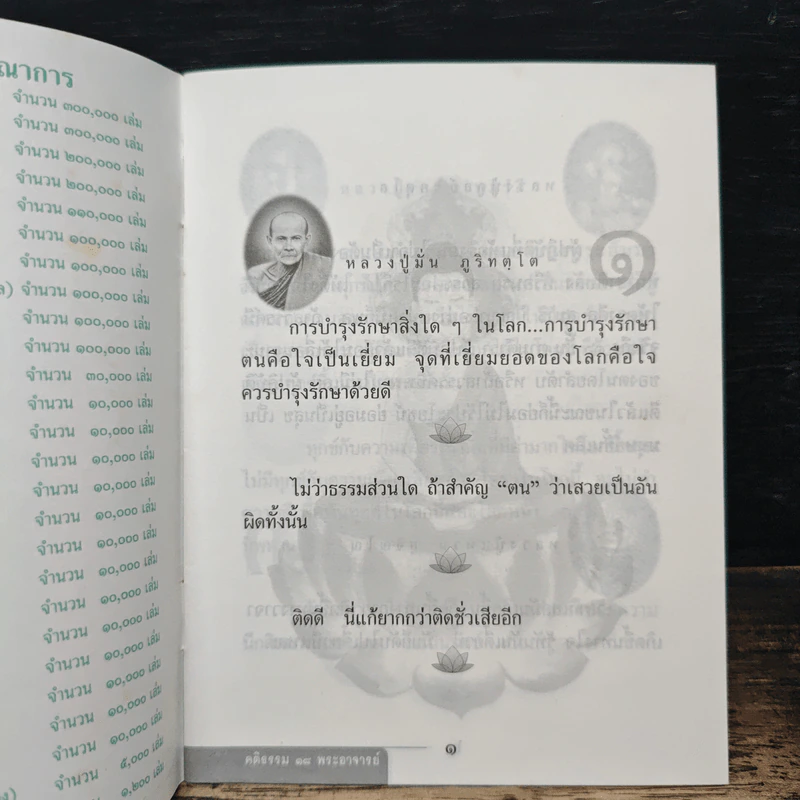 ณาการ
จำนวน ๓๐๐,๐๐๐ เล่ม
จำนวน ๓๐๐,๐๐๐ เล่ม
จำนวน ๒๐๐,๐๐๐ เล่ม
จำนวน ๒๐๐,๐๐๐ เล่ม
จำนวน ๑๑๐,๐๐๐ เล่ม
จำนวน ๑๐๐,๐๐๐ เล่ม
จำนวน ๑๐๐,๐๐๐ เล่ม
ล) จำนวน ๑๐๐,๐๐๐ เล่ม
จำนวน ๑๐๐,๐๐๐ เล่ม
จำนวน ๓๐,๐๐๐ เล่ม
จำนวน ๑๐,๐๐๐ เล่ม
จำนวน ๑๐,๐๐๐ เล่ม
จำนวน ๑๐,๐๐๐ เล่ม
จำนวน ๑๐,๐๐๐ เล่ม
จำนวน ๑๐,๐๐๐ เล่ม
จำนวน ๑๐,๐๐๐ เล่ม
จำนวน ๑๐,๐๐๐ เล่ม
จำนวน ๑๐,๐๐๐ เล่ม
จำนวน ๑๐,๐๐๐ เล่ม
จำนวน ๑๐,๐๐๐ เล่ม
จำนวน ๑๐,๐๐๐ เล่ม
จำนวน ๑๐,๐๐๐ เล่ม
จำนวน ๕,๐๐๐ เล่ม
จำนวน ๑,๒๐๐ เล่ม
หลวงปู่มั่น ภูริทตฺโต
๑
การบำรุงรักษาสิ่งใด ๆ ในโลก...การบำรุงรักษา
ตนคือใจเป็นเยี่ยม จุดที่เยี่ยมยอดของโลกคือใจ
ควรบำรุงรักษาด้วยดี
ไม่ว่าธรรมส่วนใด ถ้าสำคัญ “ตน” ว่าเสวยเป็นอัน
ผิดทั้งนั้น
ติดดี นี่แก้ยากกว่าติดชั่วเสียอีก
คติธรรม ๑๘ พระอาจารย์
๑